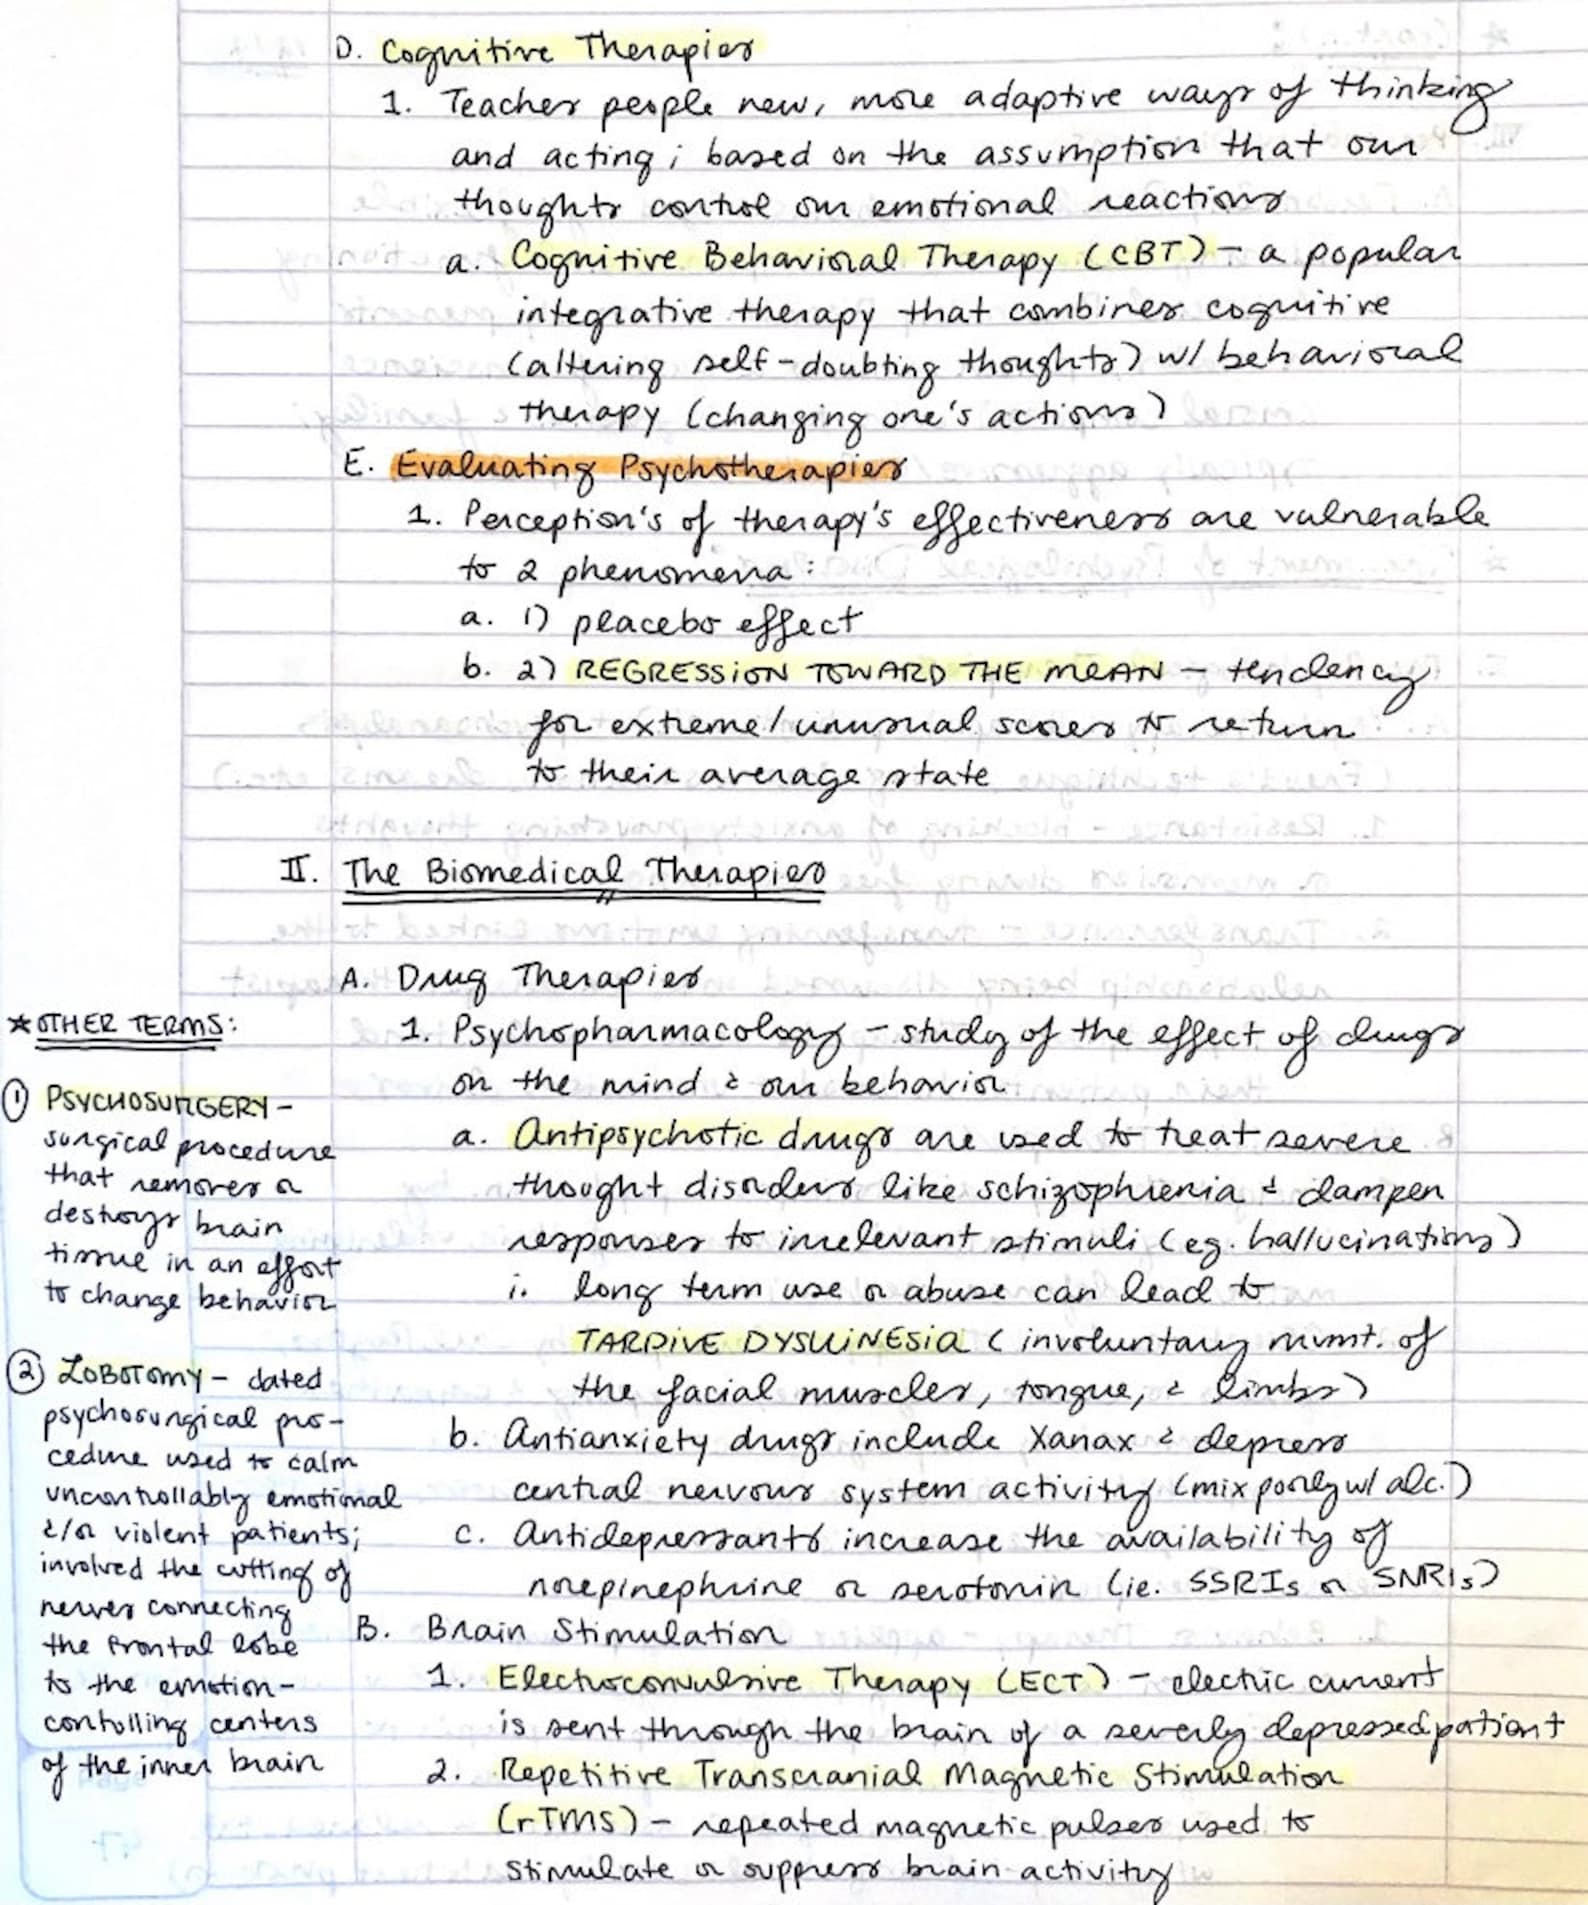 D. Cognitive Therapies
1. Teaches people new, more adaptive ways of thinking
and acting; based on the assumption that our
thoughts control our emotional reactions
a. Cognitive Behavioral Therapy (CBT) - a popular
integrative therapy that combines cognitive
(altering self-doubting thoughts) w/ behavioral
therapy (changing one's actions)
E. Evaluating Psychotherapies
1. Perception's of therapy's effectiveness are vulnerable
to 2 phenomena:
a. 1) placebo effect
b. 2) REGRESSiON TOWARD THE MEAN - tendency
for extreme/unusual scores to return
to their average state
II. The Biomedical Therapies
A. Drug Therapies
1. Psychopharmacology - study of the effect of drugs
on the mind & our behavior
a. Antipsychotic drugs are used to treat severe
thought disorders like schizophrenia & dampen
responses to irrelevant stimuli (eg. hallucinations)
i. long term use or abuse can lead to
TARDIVE DYSKiNESia (involuntary mvmt. of
the facial muscles, tongue, & limbs)
b. Antianxiety drugs include Xanax & depress
central nervous system activity (mix poorly w/ alc.)
c. Antidepressants increase the availability of
norepinephrine or serotonin (ie. SSRIs or SNRIs)
B. Brain Stimulation
1. Electroconvulsive Therapy (ECT) - electric current
is sent through the brain of a severly depressed patient
2. Repetitive Transcranial Magnetic Stimulation
(rTMS) - repeated magnetic pulses used to
stimulate or suppress brain activity
★ OTHER TERMS:
① PSYCHOSURGERY -
surgical procedure
that removes or
destroys brain
tissue in an effort
to change behavior
② LOBOTOMY - dated
psychosurgical pro-
cedure used to calm
uncontrollably emotional
&/or violent patients;
involved the cutting of
nerves connecting
the frontal lobe
to the emotion-
contolling centers
of the inner brain